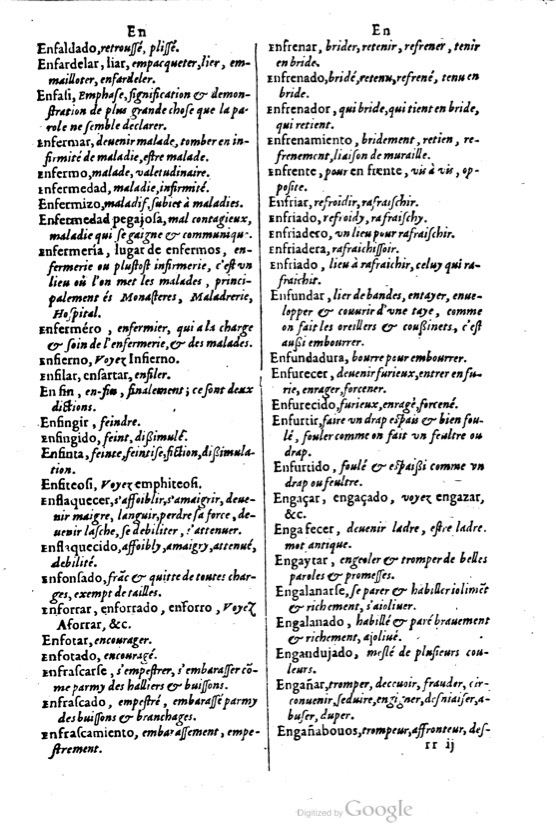 En
Enfaldado, retroussé, plissé.
Enfardelar, liar, empacqueter, lier, em-
mailloter, enfardeler.
Enfasi, Emphase, signification & demon-
stration de plus grande chose que la pa-
role ne semble declarer.
Enfermar, deuenir malade, tomber en in-
firmité de maladie, estre malade.
Enfermo, malade, valetudinaire.
Enfermedad, maladie, infirmité.
Enfermizo, maladif, subiet à maladies.
Enfermedad pegajosa, mal contagieux,
maladie qui se gaigne & communique.
Enfermería, lugar de enfermos, en-
fermerie ou plustost infirmerie, c'est vn
lieu où l'on met les malades, princi-
palement és Monasteres, Maladrerie,
Hospital.
Enferméro, enfermier, qui a la charge
& soin de l'enfermerie, & des malades.
Enfierno, Voyez Infierno.
Enfilar, ensartar, enfiler.
En fin, en-fin, finalement; ce sont deux
dictions.
Enfingir, feindre.
Enfingido, feint, dissimulé.
Enfinta, feince, feintise, fiction, dissimula-
tion.
Enfiteosi, Voyez emphiteosi.
Enflaquecer, s'affoiblir, s'amaigrir, deue-
nir maigre, languir, perdre sa force, de-
uenir lasche, se debiliter, s'attenuer.
Enflaquecido, affoibly, amaigry, attenué,
debilité.
Enfonsado, frãc & quitte de toutes char-
ges, exempt de tailles.
Enforrar, enforrado, enforro, Voyez
Aforrar, &c.
Enfotar, encourager.
Enfotado, encouragé.
Enfrascarse, s'empestrer, s'embarasser cõ-
me parmy des halliers & buissons.
Enfrascado, empestré, embarassé parmy
des buissons & branchages.
Enfrascamiento, embarassement, empe-
strement.
En
Enfrenar, brider, retenir, refrener, tenir
en bride.
Enfrenado, bridé, retenu, refrené, tenu en
bride.
Enfrenador, qui bride, qui tient en bride,
qui retient.
Enfrenamiento, bridement, retien, re-
frenement, liaison de muraille.
Enfrente, pour en frente, vis à vis, op-
posite.
Enfriar, refroidir, rafraischir.
Enfriado, refroidy, rafraischy.
Enfriadero, vn lieu pour rafraischir.
Enfriadera, rafraichissoir.
Enfriado, lieu à rafraichir, celuy qui ra-
fraichit.
Enfundar, lier de bandes, entayer, enue-
lopper & couurir d'vne taye, comme
on fait les oreillers & coussinets, c'est
aussi embourrer.
Enfundadura, bourre pour embourrer.
Enfurecer, deuenir furieux, entrer en fu-
rie, enrager, forcener.
Enfurecido, furieux, enragé, forcené.
Enfurtir, faire vn drap espais & bien fou-
lé, fouler comme on fait vn feultre ou
drap.
Enfurtido, foulé & espaissi comme vn
drap ou feultre.
Engaçar, engaçado, voyez engazar,
&c.
Engafecer, deuenir ladre, estre ladre.
mot antique.
Engaytar, engeoler & tromper de belles
paroles & promesses.
Engalanarse, se parer & habiller ioliment
& richement, s'aioliuer.
Engalanado, habillé & paré brauement
& richement, ajolivé.
Engandujado, meslé de plusieurs cou-
leurs.
Engañar, tromper, deceuoir, frauder, cir-
conuenir, seduire, engigner, desniaiser, a-
buser, duper.
Engañabouos, trompeur, affronteur, des-
rr ij
Digitized by Google